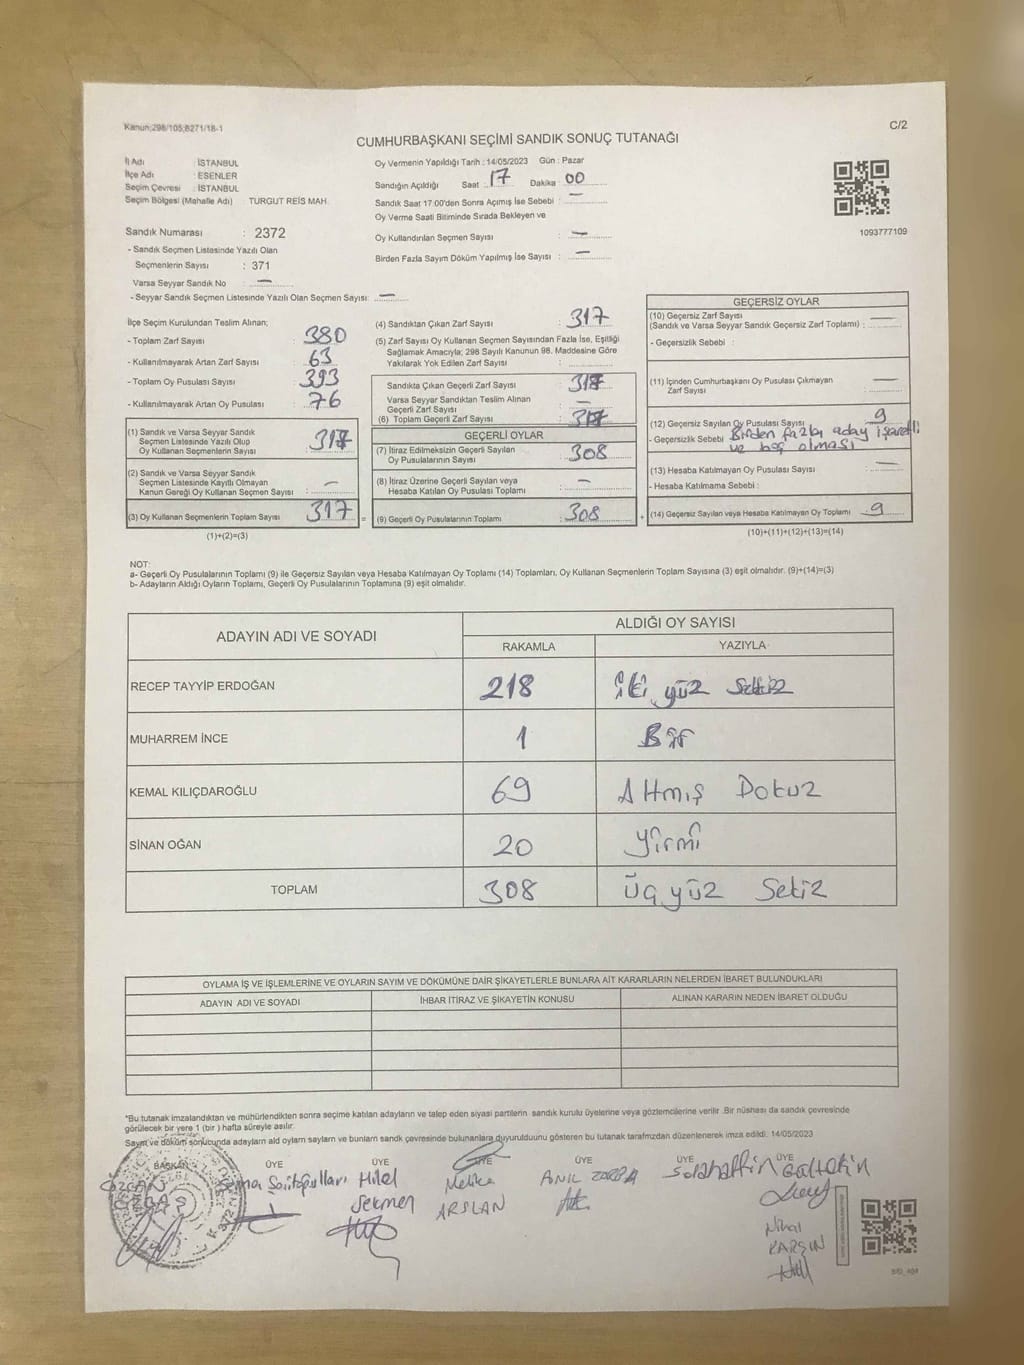 Kanun;298/105;6271/18-1
C/2
CUMHURBAŞKANI SEÇİMİ SANDIK SONUÇ TUTANAĞI
İl Adı : İSTANBUL
İlçe Adı : ESENLER
Seçim Çevresi : İSTANBUL
Seçim Bölgesi (Mahalle Adı) TURGUT REİS MAH.
Oy Vermenin Yapıldığı Tarih : 14/05/2023 Gün : Pazar
Sandığın Açıldığı Saat : 17 Dakika : 00
Sandık Saat 17:00'den Sonra Açılmış İse Sebebi : —
Oy Verme Saati Bitiminde Sırada Bekleyen ve
Oy Kullandırılan Seçmen Sayısı : —
Birden Fazla Sayım Döküm Yapılmış İse Sayısı : —
1093777109
Sandık Numarası : 2372
- Sandık Seçmen Listesinde Yazılı Olan
Seçmenlerin Sayısı : 371
Varsa Seyyar Sandık No : —
- Seyyar Sandık Seçmen Listesinde Yazılı Olan Seçmen Sayısı: —
İlçe Seçim Kurulundan Teslim Alınan;
- Toplam Zarf Sayısı : 380
- Kullanılmayarak Artan Zarf Sayısı : 63
- Toplam Oy Pusulası Sayısı : 393
- Kullanılmayarak Artan Oy Pusulası : 76
(1) Sandık ve Varsa Seyyar Sandık
Seçmen Listesinde Yazılı Olup
Oy Kullanan Seçmenlerin Sayısı : 317
(2) Sandık ve Varsa Seyyar Sandık
Seçmen Listesinde Kayıtlı Olmayan
Kanun Gereği Oy Kullanan Seçmen Sayısı : —
(3) Oy Kullanan Seçmenlerin Toplam Sayısı : 317
(1)+(2)=(3)
(4) Sandıktan Çıkan Zarf Sayısı : 317
(5) Zarf Sayısı Oy Kullanan Seçmen Sayısından Fazla İse, Eşitliği
Sağlamak Amacıyla; 298 Sayılı Kanunun 98. Maddesine Göre
Yakılarak Yok Edilen Zarf Sayısı :
Sandıkta Çıkan Geçerli Zarf Sayısı : 317
Varsa Seyyar Sandıktan Teslim Alınan
Geçerli Zarf Sayısı : —
(6) Toplam Geçerli Zarf Sayısı : 317
GEÇERLİ OYLAR
(7) İtiraz Edilmeksizin Geçerli Sayılan
Oy Pusulalarının Sayısı : 308
(8) İtiraz Üzerine Geçerli Sayılan veya
Hesaba Katılan Oy Pusulası Toplamı : —
= (9) Geçerli Oy Pusulalarının Toplamı : 308 +
GEÇERSİZ OYLAR
(10) Geçersiz Zarf Sayısı
(Sandık ve Varsa Seyyar Sandık Geçersiz Zarf Toplamı) : —
- Geçersizlik Sebebi :
(11) İçinden Cumhurbaşkanı Oy Pusulası Çıkmayan
Zarf Sayısı : —
(12) Geçersiz Sayılan Oy Pusulası Sayısı : 9
- Geçersizlik Sebebi : Birden fazla aday işaretli
ve boş olması
(13) Hesaba Katılmayan Oy Pusulası Sayısı : —
- Hesaba Katılmama Sebebi :
(14) Geçersiz Sayılan veya Hesaba Katılmayan Oy Toplamı : 9
(10)+(11)+(12)+(13)=(14)
NOT:
a- Geçerli Oy Pusulalarının Toplamı (9) ile Geçersiz Sayılan veya Hesaba Katılmayan Oy Toplamı (14) Toplamları, Oy Kullanan Seçmenlerin Toplam Sayısına (3) eşit olmalıdır. (9)+(14)=(3)
b- Adayların Aldığı Oyların Toplamı, Geçerli Oy Pusulalarının Toplamına (9) eşit olmalıdır.
ADAYIN ADI VE SOYADI
ALDIĞI OY SAYISI
RAKAMLA YAZIYLA
RECEP TAYYİP ERDOĞAN 218 iki yüz sekiz
MUHARREM İNCE 1 Bir
KEMAL KILIÇDAROĞLU 69 Altmış Dokuz
SİNAN OĞAN 20 yirmi
TOPLAM 308 üç yüz Sekiz
OYLAMA İŞ VE İŞLEMLERİNE VE OYLARIN SAYIM VE DÖKÜMÜNE DAİR ŞİKAYETLERLE BUNLARA AİT KARARLARIN NELERDEN İBARET BULUNDUKLARI
ADAYIN ADI VE SOYADI İHBAR İTİRAZ VE ŞİKAYETİN KONUSU ALINAN KARARIN NEDEN İBARET OLDUĞU
*Bu tutanak imzalandıktan ve mühürlendikten sonra seçime katılan adayların ve talep eden siyasi partilerin sandık kurulu üyelerine veya gözlemcilerine verilir .Bir nüshası da sandık çevresinde
görülecek bir yere 1 (bir ) hafta süreyle asılır.
Sayım ve döküm sonucunda adayların ald oyların sayların ve bunların sandk çevresinde bulunanlara duyurulduunu gösteren bu tutanak tarafımzdan düzenlenerek imza edildi. 14/05/2023
BAŞKAN ÜYE ÜYE ÜYE ÜYE ÜYE ÜYE
Hilal Melike ANIL Selahattin Gültekin
Sekmen ARSLAN
Nihal
KARGIN